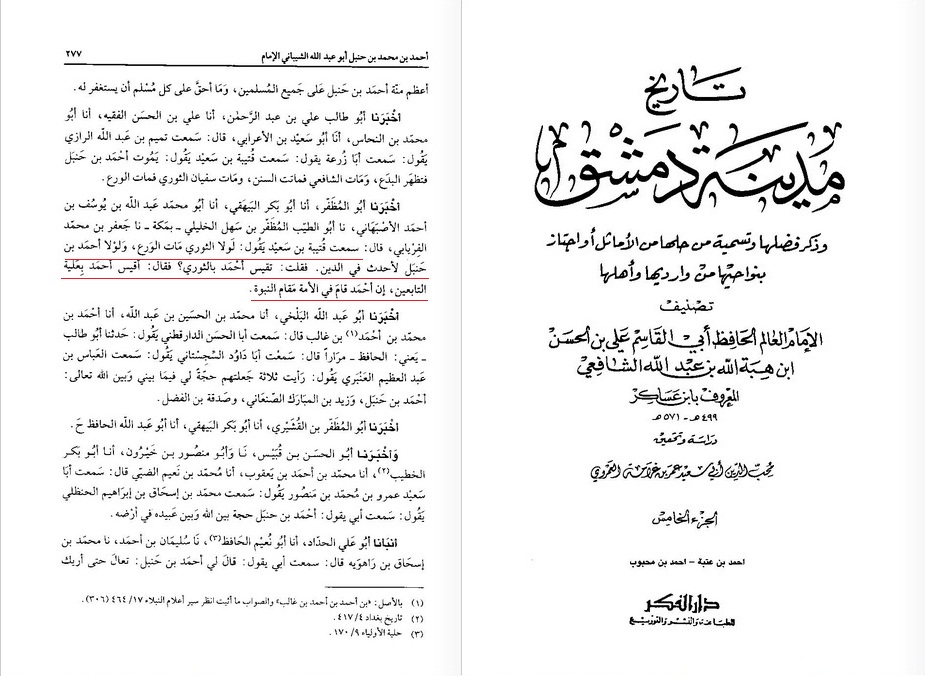 تاريخ
مدينة دمشق
وذكر فضلها وتسمية من حلها من الأماثل أو اجتاز
بنواحيها من وارديها وأهلها
تصنيف
الإمام العالم الحافظ أبي القاسم علي بن الحسن
ابن هبة الله بن عبد الله الشافعي
المعروف بابن عساكر
٤٩٩هـ - ٥٧١هـ
دراسة وتحقيق
محب الدين أبي سعيد عمر بن غرامة العمروي
الجزء الخامس
احمد بن عتبة - احمد بن محبوب
دار الفكر
للطباعة والنشر والتوزيع
أحمد بن محمد بن حنبل أبو عبد الله الشيباني الإمام ٢٧٧
أعظم منّة أحمَد بن حَنبل عَلى جَميع المُسلمين، وَمَا أحقَّ على كل مُسْلم أن يستغفر له.
أخْبَرَنا أبُو طالب علي بن عبد الرَّحمٰن، أنا علي بن الحسَن الفقيه، أنا أبُو
محمّد بن النحاس، أنَا أبُو سَعيْد بن الأعرابي، قال: سَمعت تميم بن عَبد اللّه الرازي
يَقُول: سَمعت أبَا زُرعة يقول: سَمعت قُتيبة بن سَعيْد يَقُول: يَمُوت أحْمَد بن حَنبَل
فتظهَر البدَع، وَمَات الشافعي فماتت السنن، ومَات سفيان الثوري فمات الورع.
أخْبَرَنا أبُو المُظَفّر، أنا أبُو بَكر البَيهَقي، أنا أبُو محمّد عَبد اللّه بن يُوسُف بن
أحمد الأصْبَهَاني، نا أبُو الطيّب المُظَفّر بن سَهل الخليلي ـ بمَكة ـ نا جَعفر بن محمّد
الفِريَابي، قال: سمعت قُتَيبة بن سَعيْد يَقُول: لَولا الثوري مَات الوَرع، وَلوْلا أحمد بن
حَنبَل لأحدث في الدين. فقلت: تقيس أحْمَد بالثوري؟ فقال: أقيس أحمَد بِعلّية
التابعين، إن أحْمَد قامَ في الأمة مَقام النبوة.
أخْبَرَنا أبُو عبد اللّه البَلْخي، أنا محمّد بن الحسَين بن عَبد اللّه، أنا أحْمَد بن
محمّد بن أحْمَد(١) بن غالب قال: سَمعت أبا الحسَن الدارقطني يَقُول: حَدثنا أبُو طالب
ـ يَعني: الحافظ ـ مرَاراً قال: سَمعْت أبَا دَاوُد السِّجِسْتاني يَقُول: سَمعت العَباس بن
عَبد العظيم العَنْبَري يَقُول: رَأيت ثلاثة جَعلتهم حجَةً لي فيمَا بيني وَبَين الله تعالى:
أحْمد بن حَنبَل، وَزيد بن المبَارَك الصَّنعَاني، وصَدقة بن الفضل.
أخْبَرَنا أبُو المُظَفّر بن القُشَيْري، أنا أبُو بَكر البَيهقي، أنا أبُو عَبد اللّه الحافظ حَ.
وَأخْبَرَنا أبُو الحسَن بن قُبَيْس، نَا وَأبُو منصُور بن خَيْرُون، أنَا أبُو بَكر
الخطيب(٢)، أنا محمد بن أحمَد بن يَعقوب، أنا مُحمّد بن نَعيم الضبّي قال: سَمعت أبَا
سَعيْد عمرو بن مُحمّد بن مَنصُور يَقُول: سَمعت محمّد بن إسحَاق بن إبرَاهيم الحنظلي
يَقُول: سَمعت أبي يقول: أحْمَد بن حنبَل حجة بين الله وَبين عَبيده في أرْضه.
أنبَأنا أبُو عَلي الحدّاد، أنا أبُو نُعيْم الحَافظ(٣)، نَا سُليمَان بن أحمَد، نا محمد بن
إسحَاق بن رَاهَويه قال: سمعت أبي يقول: قالَ لي أحمَد بن حَنبل: تعالَ حتى أريك
(١) بالأصل: «بن أحمد بن أحمد بن غالب» والصواب ما أثبت انظر سير أعلام النبلاء ١٧/ ٤٦٤ (٣٠٦).
(٢) تاريخ بغداد ٤/ ٤١٧.
(٣) حلية الأولياء ٩/ ١٧٠.